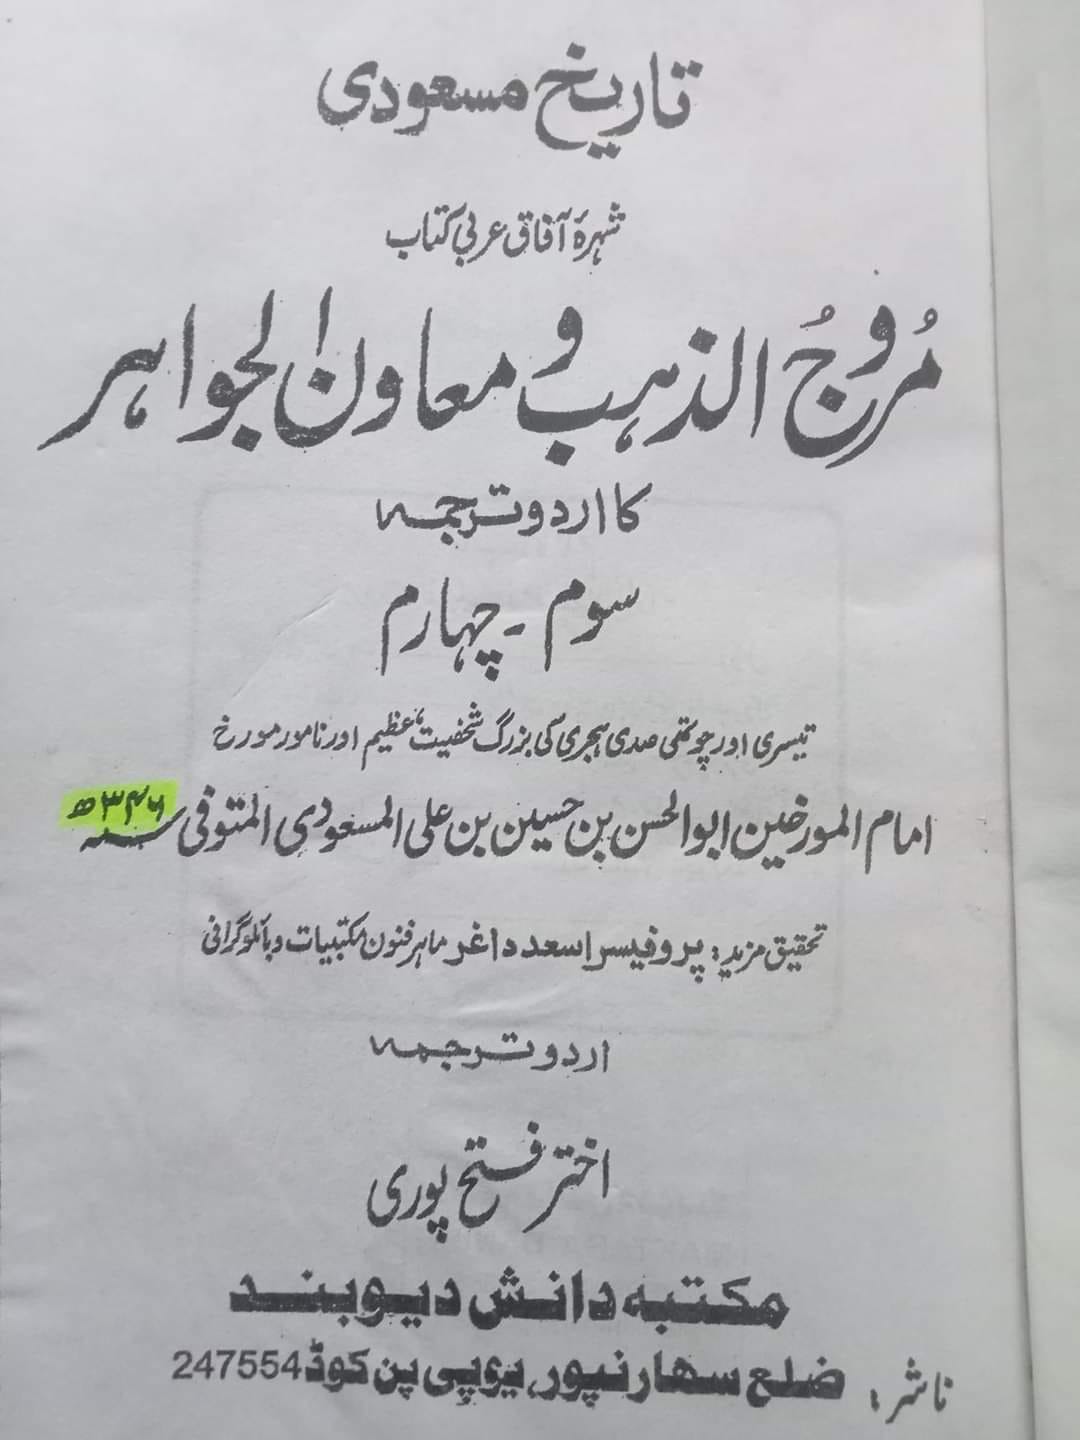 تاریخ مسعودی
شہرۂ آفاق عربی کتاب
مُروجُ الذہب و معاون الجواہر
کا اردو ترجمہ
سوم - چہارم
تیسری اور چوتھی صدی ہجری کی بزرگ شخصیت، عظیم اور نامور مورخ
امام المورخین ابوالحسن بن حسین بن علی المسعودی المتوفی سنہ ۳۴۶ھ
تحقیق مزید: پروفیسر اسعد داغر ماہر فنون مکتبیات و ببلوگرافی
اردو ترجمہ
اختر فتح پوری
مکتبہ دانش دیوبند
ناشر: ضلع سہارنپور، یوپی پن کوڈ 247554